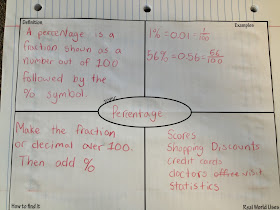 Definition
A percentage is a
fraction shown as a
number out of 100
followed by the
% symbol.
Examples
1% = 0.01 = 1/100
56% = 0.56 = 56/100
Percentage
Make the fraction
or decimal over 100.
Then add %
How to find it
Scores
Shopping Discounts
credit cards
doctors office visit
statistics
Real World Uses